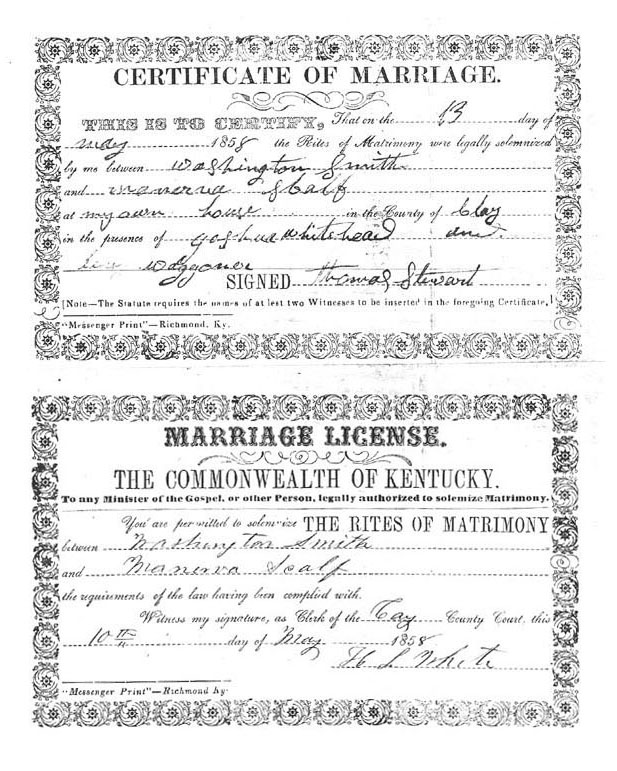 CERTIFICATE OF MARRIAGE.
THIS IS TO CERTIFY, That on the 13 day of
may 1858 the Rites of Matrimony were legally solemnized
by me between Washington Smith
and manerva Scalf
at my own house in the County of Clay
in the presence of goshua whitehead and
waggoner
SIGNED Thomas Stewart
[Note—The Statute requires the names of at lest two Witnesses to be inserted in the foregoing Certificate,]
"Messenger Print"—Richmond, Ky.
MARRIAGE LICENSE.
THE COMMONWEALTH OF KENTUCKY.
To any Minister of the Gospel, or other Person, legally authorized to solemize Matrimony.
You are permitted to solemnize THE RITES OF MATRIMONY
between Washington Smith
and Manerva Scalf
the requirements of the law having been complied with.
Witness my signature, as Clerk of the Cay County Court, this
10th day of May 1858
H L White
"Messenger Print"—Richmond Ky.